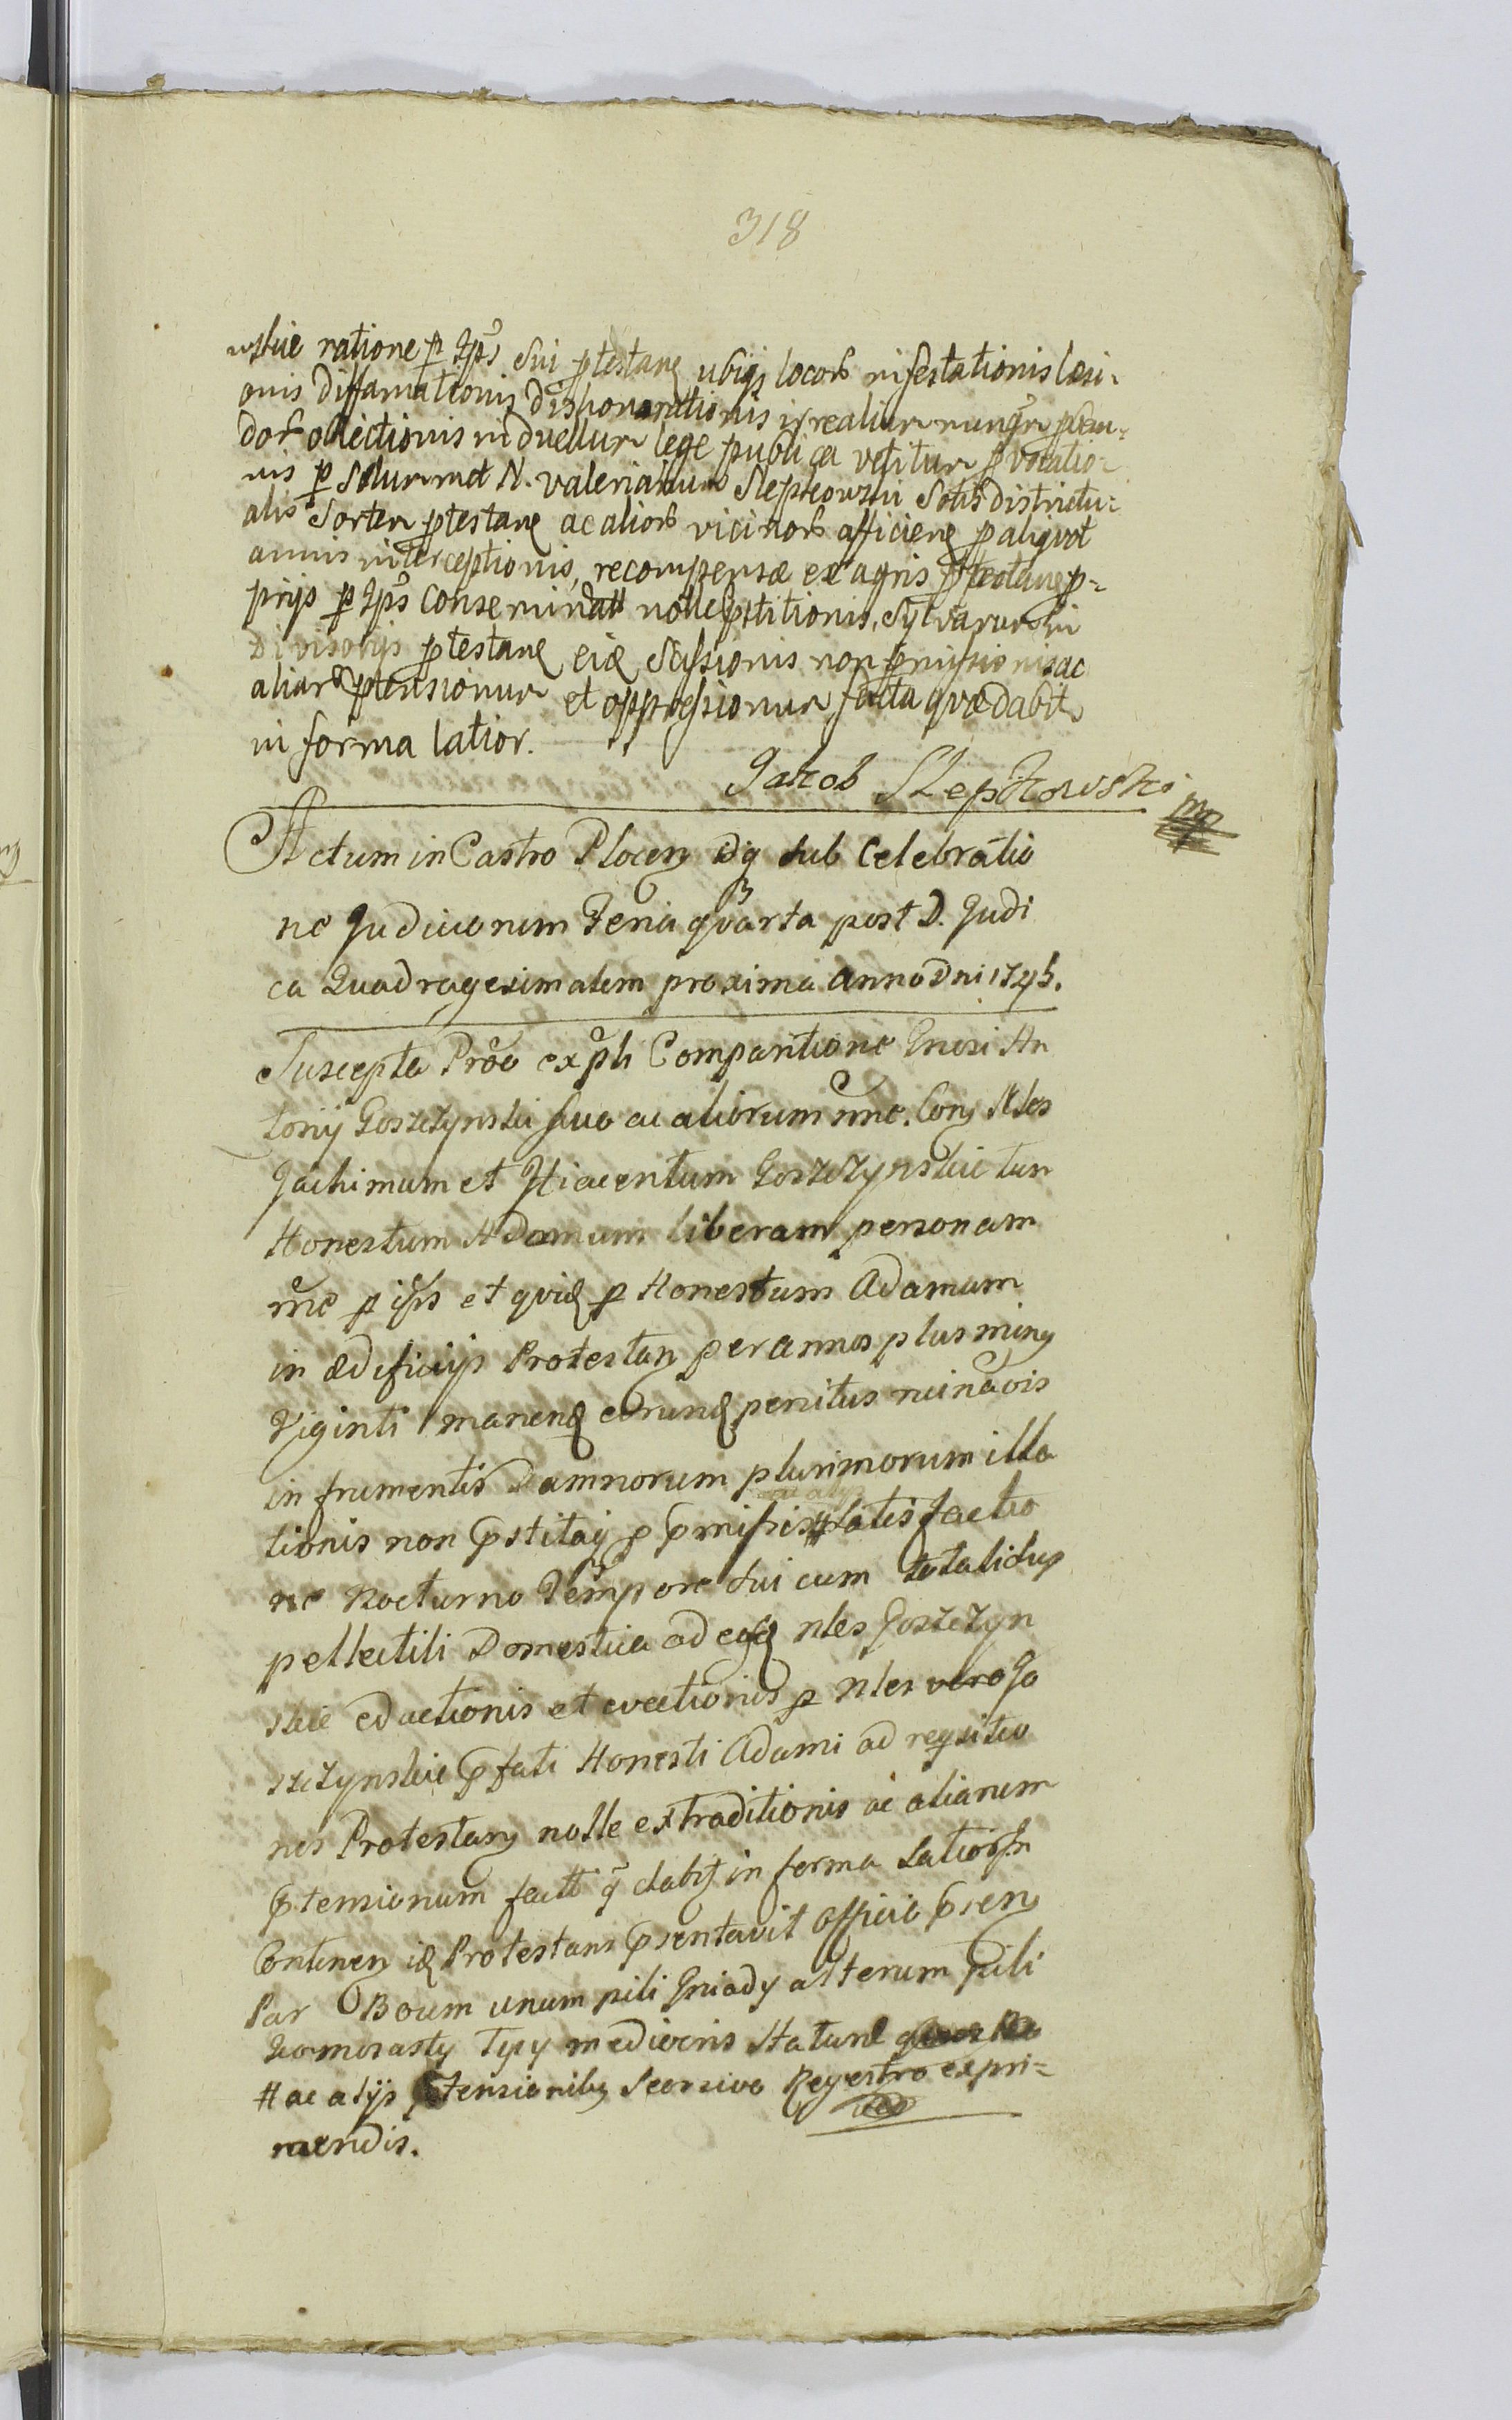 318
wskie ratione p Ips Sui ptestan ubiqs locorb infestationis læsi-
onis diffamationis dishonorationis irrealium
dor obiectionis in duellum lege publica vetitum pvocatio-
nis p Solummet N. Valerianum Slepkowski Solis districtu-
alis Sorten ptestan ac aliorb vicinorb afficien p aliqvot
annis interceptionis, recompensæ ex agris ptestan p-
prijs p Ips Conseminatt nolle pstitionis, Sylvarum in
Divisorijs ptestan eid Scissionis non pmissionis ac
aliar ptensionum et oppressionum facta qvædabit
in forma latior.
Jakob Slepkowski mp
Actum in Castro Plocen dq sub Celebratio
ne Judiciorum Feria qvarta post D. Judi
ca Quadragesimalem proxima Anno Dni 1745.
Suscepta Proõ ex pti Comparitione Gnosi An
tonij Goszczynski suo ac aliorum nne. Con Nles
Jachimum et Hiacentum Goszczynskie tum
Honestum Adamum liberam personam
rne p ipis et qvid p Honestum Adamum
in ædificijs Protestan per annos plus minq
Viginti manend eorund penitus ruinaõis
in frumentis Damnorum plurimorum illa
tionis non pstita p pmissis # Satisfactio
ne Nocturno Tempore sui cum totali sup
pellectili Domestica ad eosd Nles Goszczyn
skie eductionis et evectionis p Nles vero Go
szczynskie pfati Honesti Adami ad reqsitio
nes Protestan nolle extraditionis ac aliarum
ptensionum factt q dabit in forma Latior In
Continen id Protestans psentavit Officio psen
Par Boum unum pili Gniady alterum pili
Kormorasty Tysy mediocris Staturæ
# ac alijs ptensionibq Seorsivo Regestro expri-
mendis.